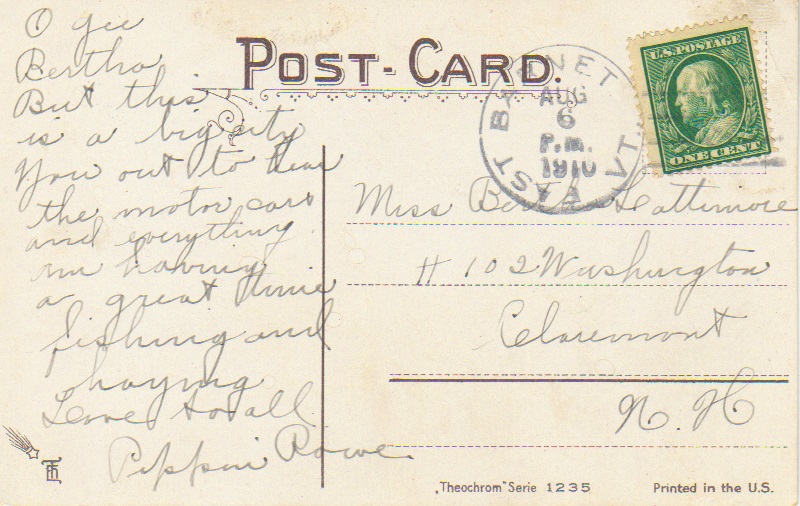 POST-CARD.
O gee
Bertha
But this
is a big city
You out to hear
the motor cars
and everything.
am having
a great time
fishing and
haying
Love to all
Pippin Rowe.
EAST BARNET VT.
AUG
6
P.M.
1910
U.S. POSTAGE
ONE CENT
Miss Berta Lattimore
# 102 Washington
Claremont
N. H
„Theochrom" Serie 1235
Printed in the U.S.